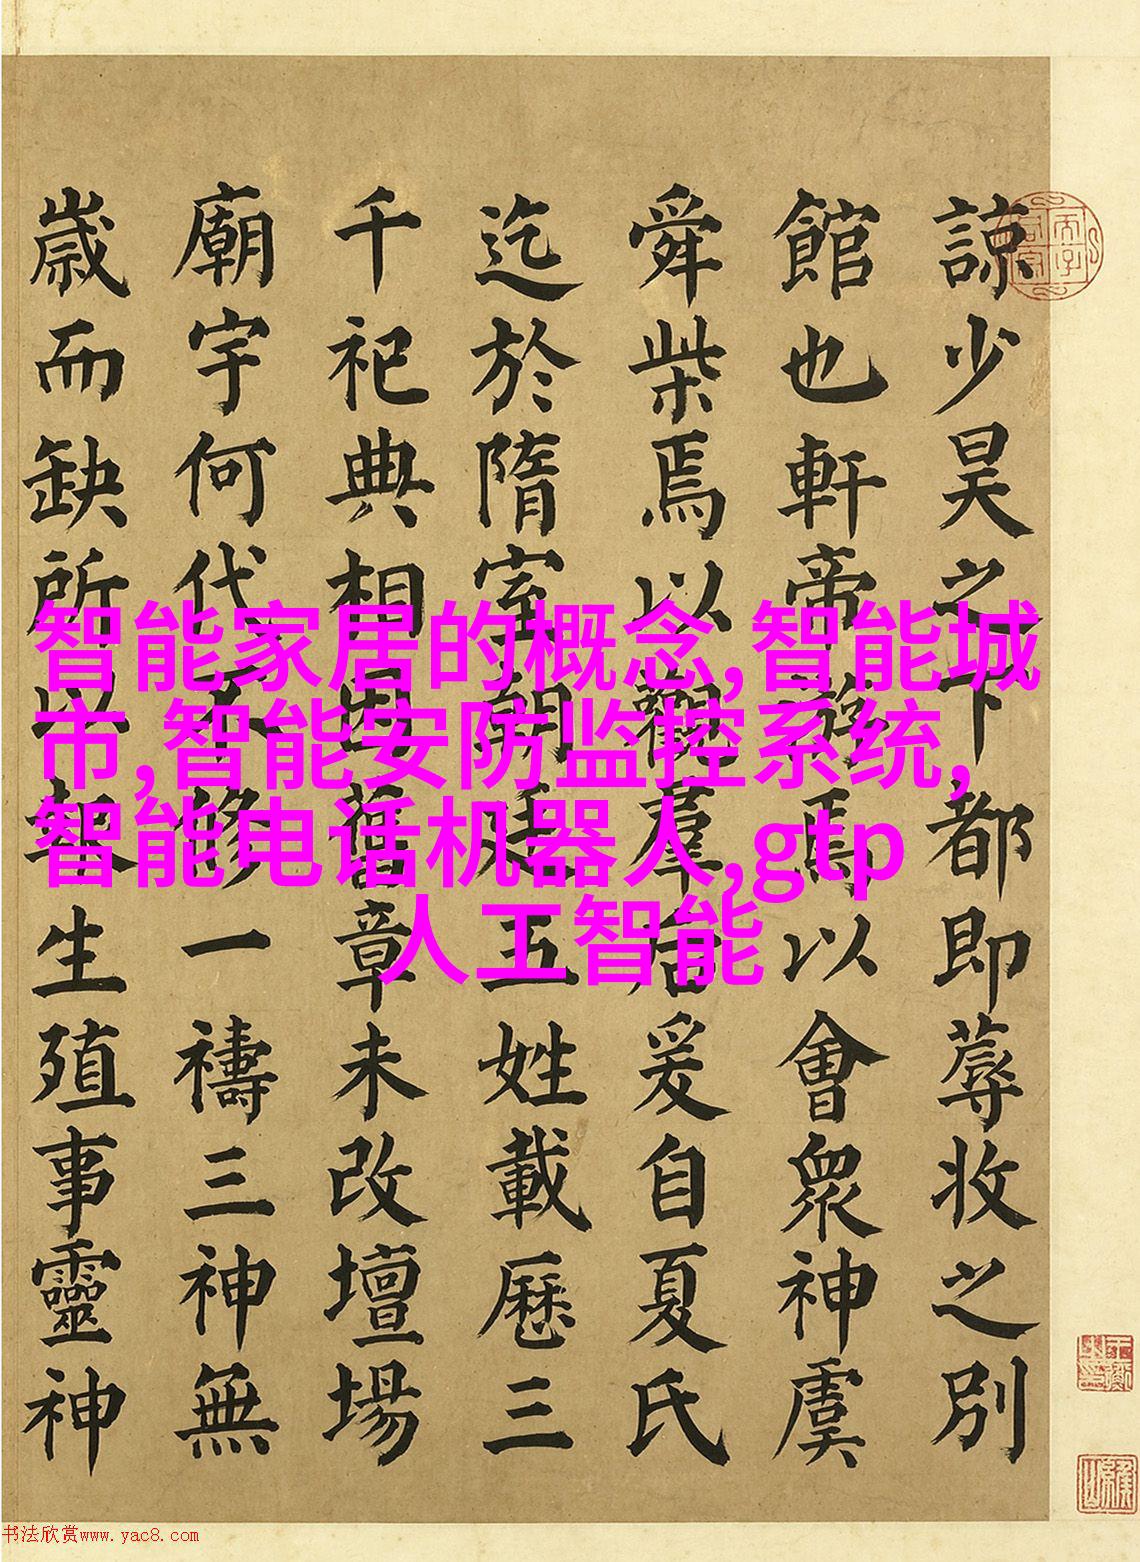 諒少昊之下都即蓐收之別
館也軒帝焉以會衆神虞
舜柴焉以觀羣后爰自夏氏
迄於隋室朝廷五姓載歷三
千祀典相因舊章未改壇場
廟宇何代不修一禱三神無
歲而缺所以報生殖事靈神
智能家居的概念,智能城
市,智能安防监控系统,
智能电话机器人,gtp
人工智能
书法欣赏www.yac8.com